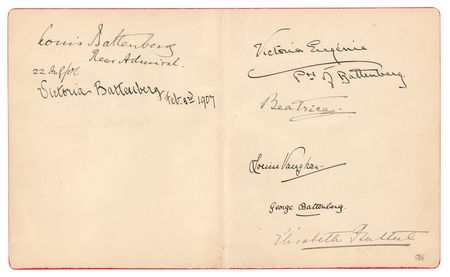 Louis Battenberg
Rear Admiral.
Victoria Battenberg Feb. 3rd 1907
Victoria Eugénie.
Pss of Battenberg.
Beatrice.
Louise Vaughan.
George Battenberg.
Elisabeth